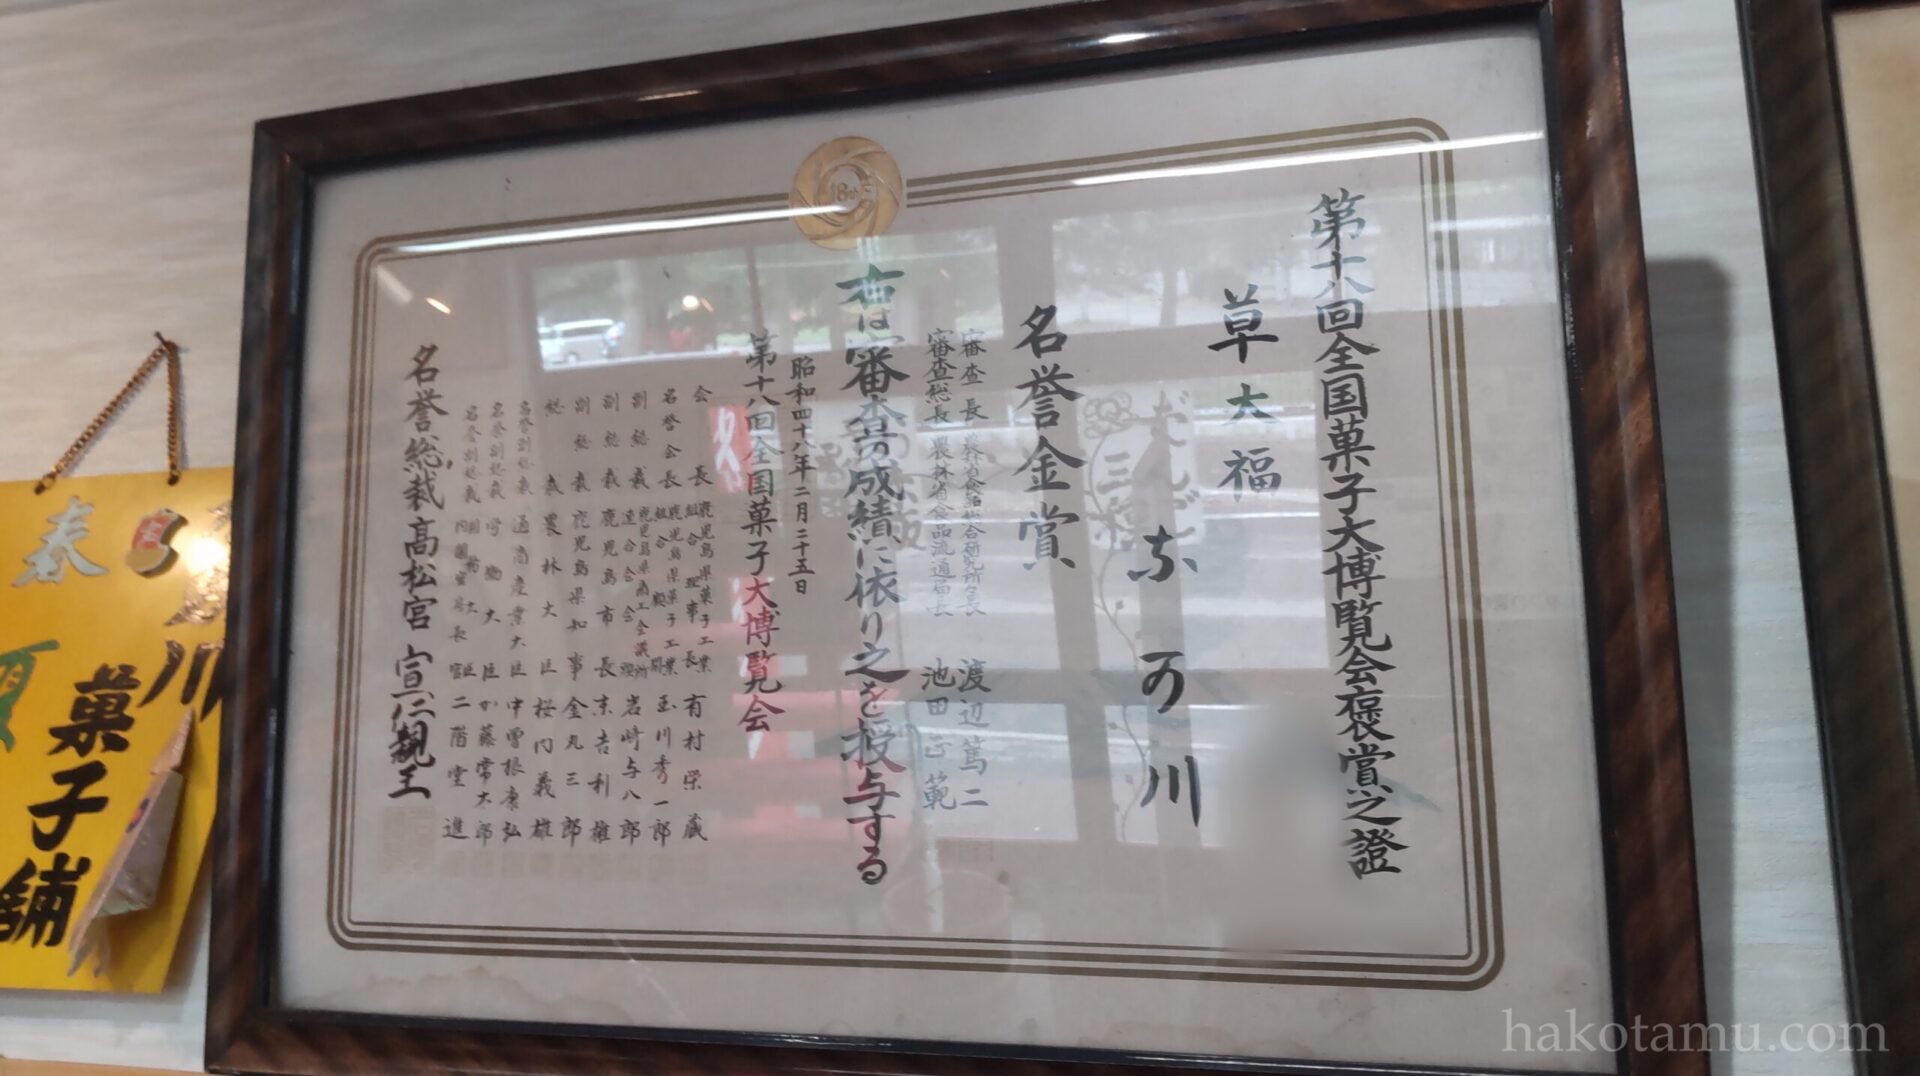 第十八回全国菓子大博覧会褒賞之證
草大福
名誉金賞
審査長
渡辺篤二
審査総長 農林省食品流通局長 池田正範
右は審査の成績に依り之を授与する
昭和四十八年二月二十五日
第十八回全国菓子大博覧会
会長 鹿児島県菓子工業組合理事長 有村栄蔵
名誉会長 鹿児島県菓子工業組合顧問 玉川秀一郎
副総裁 鹿児島県商工会議所連合会会頭 岩崎与八郎
副総裁 鹿児島市長 末吉利雄
副総裁 鹿児島県知事 金丸三郎
総裁 農林大臣 桜内義雄
名誉副総裁 通商産業大臣 中曽根康弘
名誉副総裁
大臣 加藤常太郎
名誉副総裁
二階堂進
名誉総裁 高松宮 宣仁親王
春
川
菓子舗
hakotamu.com